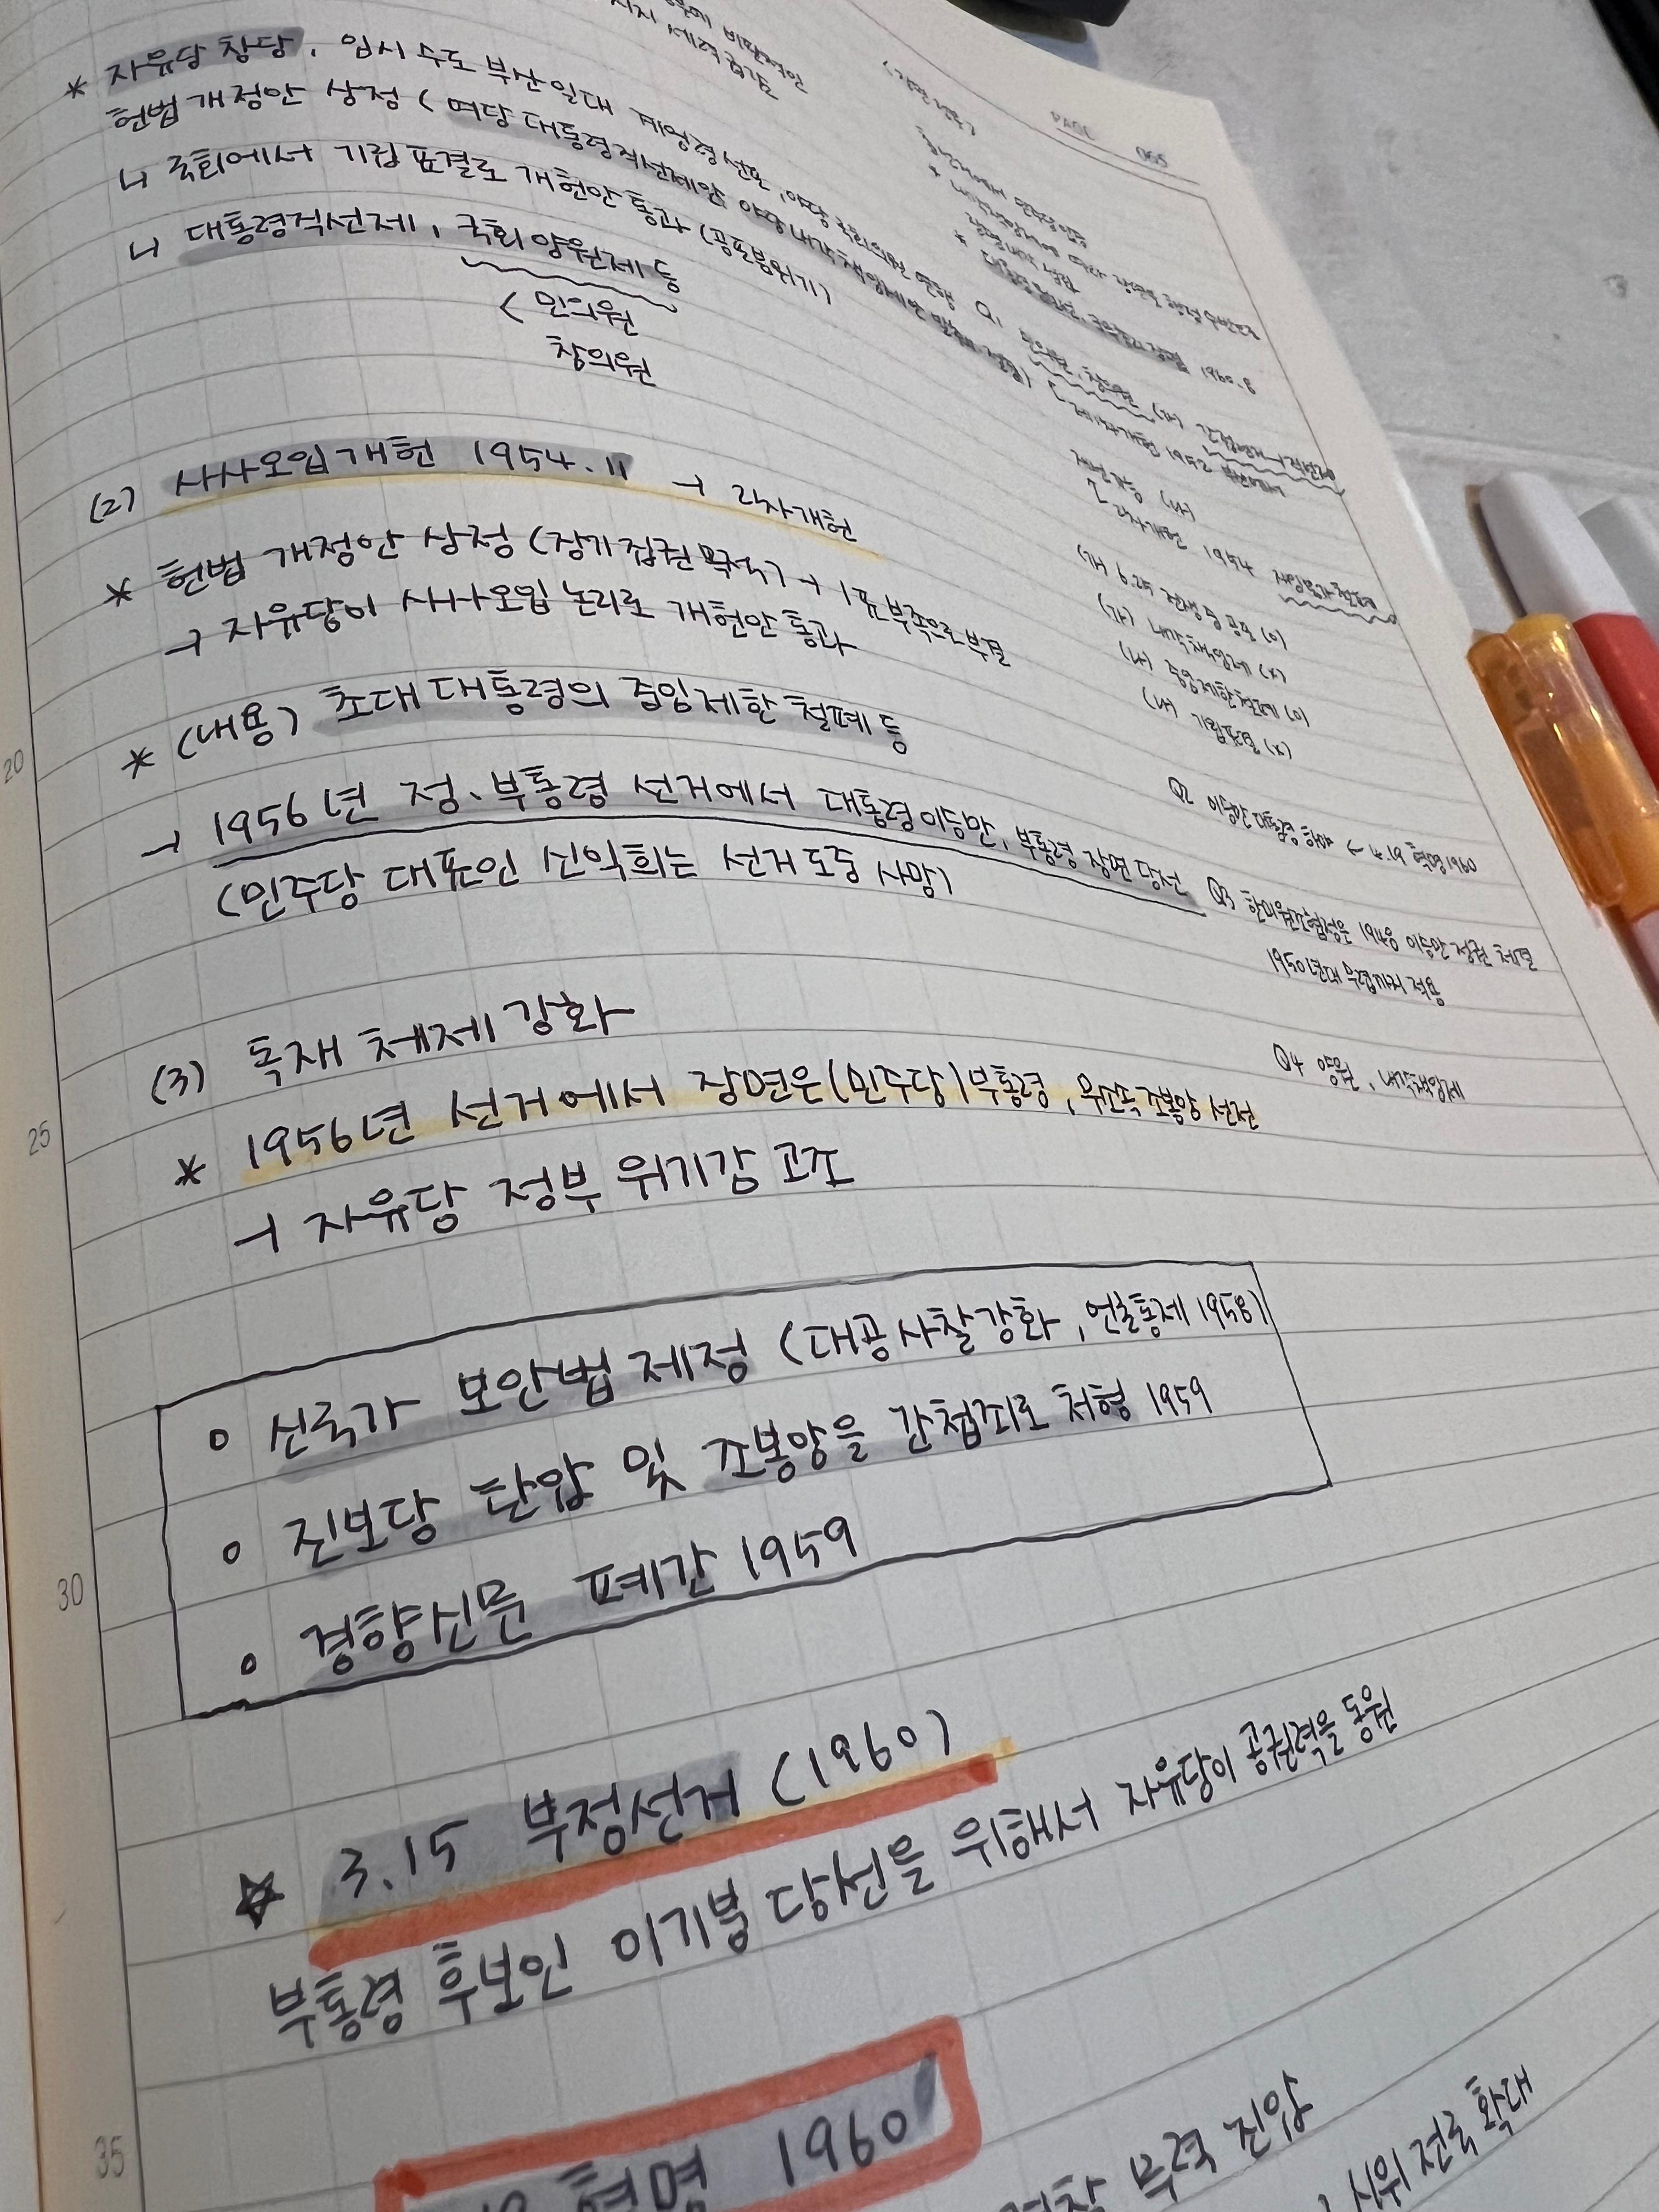 * 자유당 창당, 임시 수도 부산 일대 계엄령 선포, 야당 국회의원 연행
헌법 개정안 상정 (여당 대통령직선제안, 야당 내각책임제안
↳ 국회에서 기립 표결로 개헌안 통과 (공포분위기)
↳ 대통령직선제, 국회 양원제 등
< 민의원
참의원
(2) 사사오입 개헌 1954.11 → 2차개헌
* 헌법 개정안 상정 (장기집권 목적) → 1표 부족으로 부결
→ 자유당이 사사오입 논리로 개헌안 통과
* (내용) 초대 대통령의 중임제한 철폐 등
→ 1956년 정·부통령 선거에서 대통령 이승만, 부통령 장면 당선
(민주당 대표인 신익희는 선거 도중 사망)
(3) 독재 체제 강화
* 1956년 선거에서 장면은 (민주당) 부통령, 무소속 조봉암 선전
→ 자유당 정부 위기감 고조
o 신국가 보안법 제정 (대공사찰강화, 언론통제 1958)
o 진보당 탄압 및 조봉암을 간첩죄로 처형 1959
o 경향신문 폐간 1959
☆ 3.15 부정선거 (1960)
부통령 후보인 이기붕 당선을 위해서 자유당이 공권력을 동원
혁명 1960
경찰 무력 진압
시위 전국 확대
PAGE 065
1960.8
[ 2차개헌 1954
(가) 6.25 전쟁 중 공포 (O)
(가) 내각책임제 (X)
(나) 중임제한철폐 (O)
(나) 기립표결 (X)
Q2 이승만 대통령 하야 ← 4.19 혁명 1960
Q3 한미원조협정은 1948 이승만 정권 체결
1950년대 후반까지 적용
Q4 양원, 내각책임제
20
25
30
35